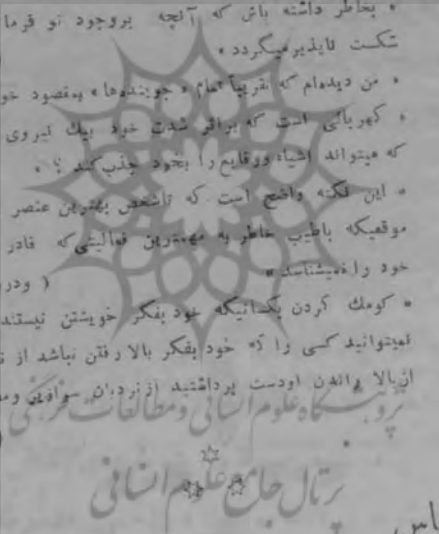 « بخاطر داشته باش که آنچه بروجود تو فرما
شکست ناپذیر میگردد »
« من دیده‌ام که تقریباً تمام « جوینده‌ها » بمقصود خو
« کهربائی است که براثر شدت خود بیك نیروی
که میتواند اشیاء ووقایع را بخود جذب کند ؟ »
« این نکته واضح است که تاشخص بهترین عنصر
موقعیکه باطیب خاطر به مهمترین فعالیتی‌که قادر
خود را نمیشناسد »
( ودر
« کومك کردن بکسانیکه خود بفکر خویشتن نیستند
نمیتوانید کسی را که خود بفکر بالا رفتن نباشد از
ازبالا راندن اودست برداشتید ازنردبان
پژوهشگاه علوم انسانی و مطالعات فرهنگی
پرتال جامع علوم انسانی
اس